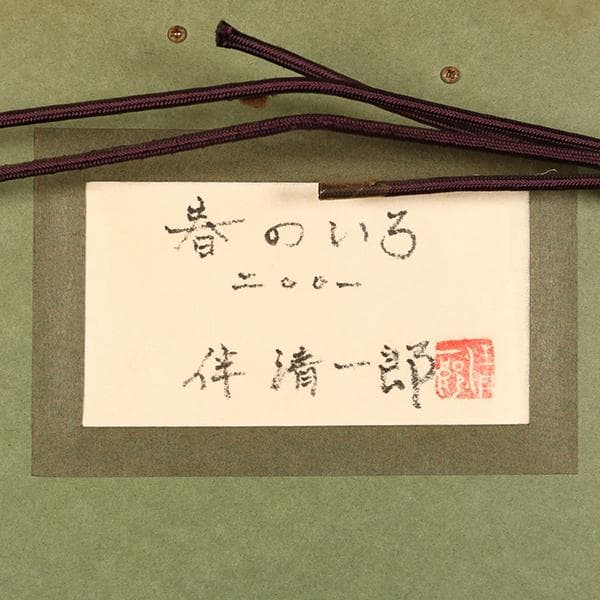 春のいろ
二〇〇一
伴清一郎